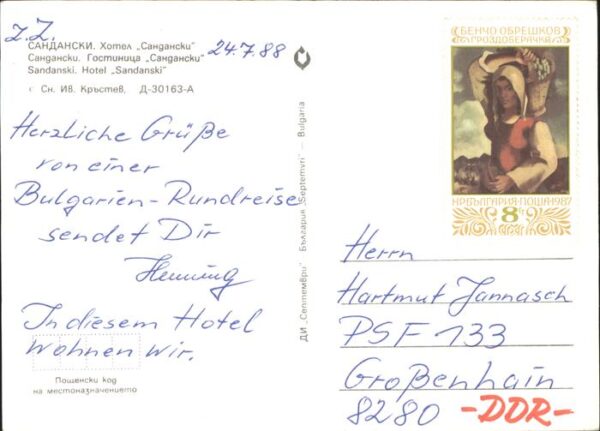 z.Z. 24.7.88
САНДАНСКИ. Хотел „Сандански“
Сандански. Гостиница „Сандански“
Sandanski. Hotel "Sandanski"
Сн. Ив. Кръстев, Д-30163-А
Herzliche Grüße
von einer
Bulgarien-Rundreise
sendet Dir
Henning
In diesem Hotel
wohnen wir.
Пощенски код
на местоназначението
ДИ „Септември“ — България „Septemvri“ — Bulgaria
БЕНЧО ОБРЕШКОВ
ГРОЗДОБЕРАЧКА
НР БЪЛГАРИЯ·ПОЩА·1987
8
Herrn
Hartmut Jannasch
PSF 133
Großenhain
8280 -DDR-